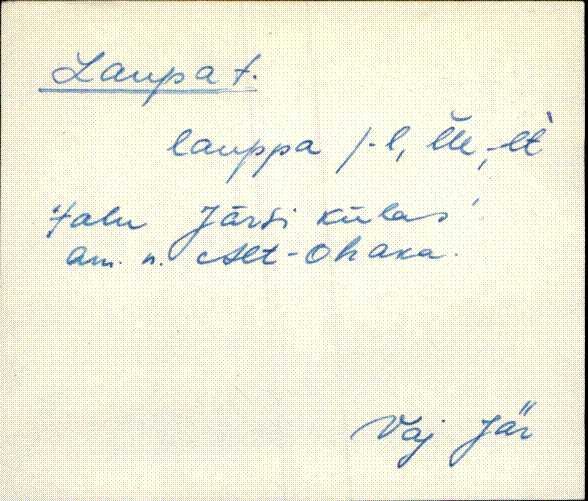 Laupa t.
lauppa /-l, -lle, -lt̀
Talu Järsi külas
am. n. Alt-Ohaka.
Vaj Jär